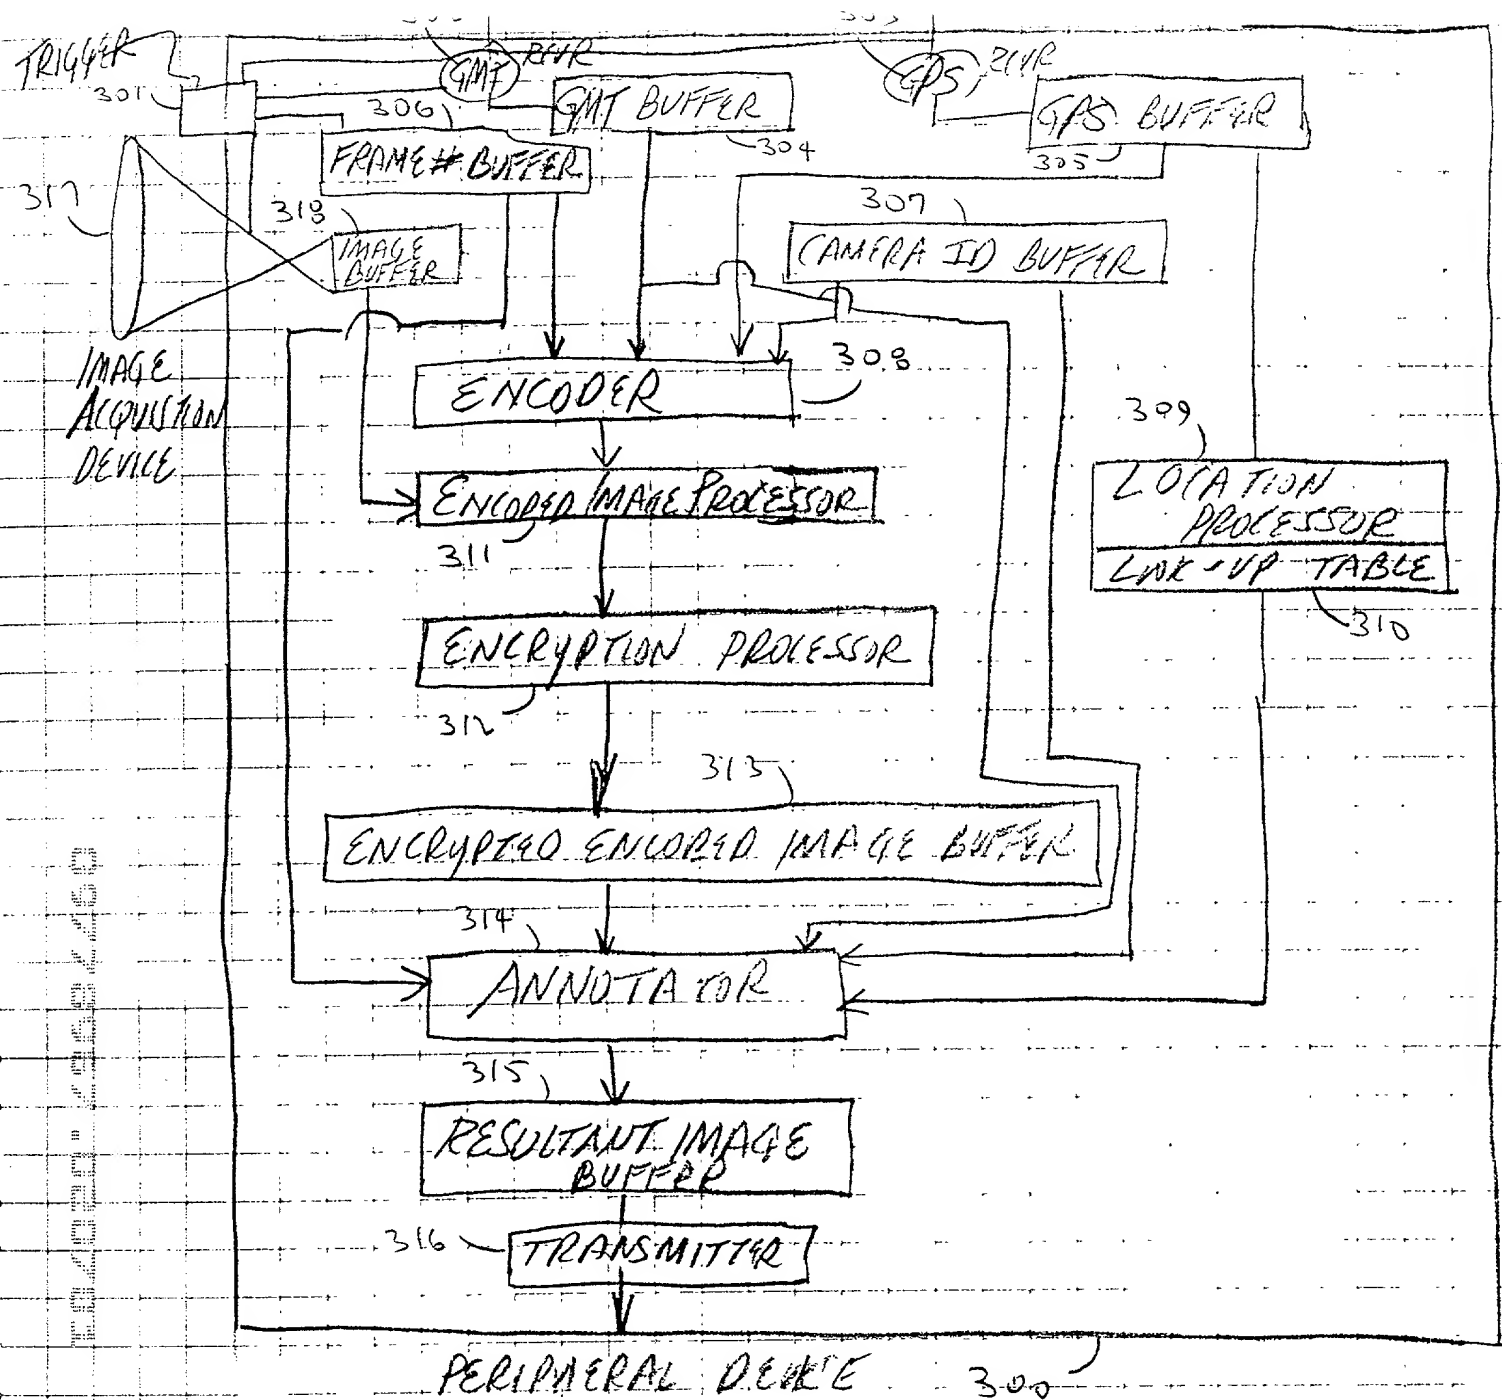 TRIGGER
301
GMT RCVR
303
GPS RCVR
306
GMT BUFFER
304
GPS BUFFER
305
FRAME # BUFFER
317
318
IMAGE
BUFFER
307
CAMERA ID BUFFER
IMAGE
ACQUISTION
DEVICE
ENCODER
308
309
ENCODED IMAGE PROCESSOR
311
LOCATION
PROCESSOR
LOOK-UP TABLE
310
ENCRYPTION PROCESSOR
312
313
ENCRYPTED ENCODED IMAGE BUFFER
314
ANNOTATOR
315
RESULTANT IMAGE
BUFFER
316
TRANSMITTER
PERIPHERAL DEVICE
300